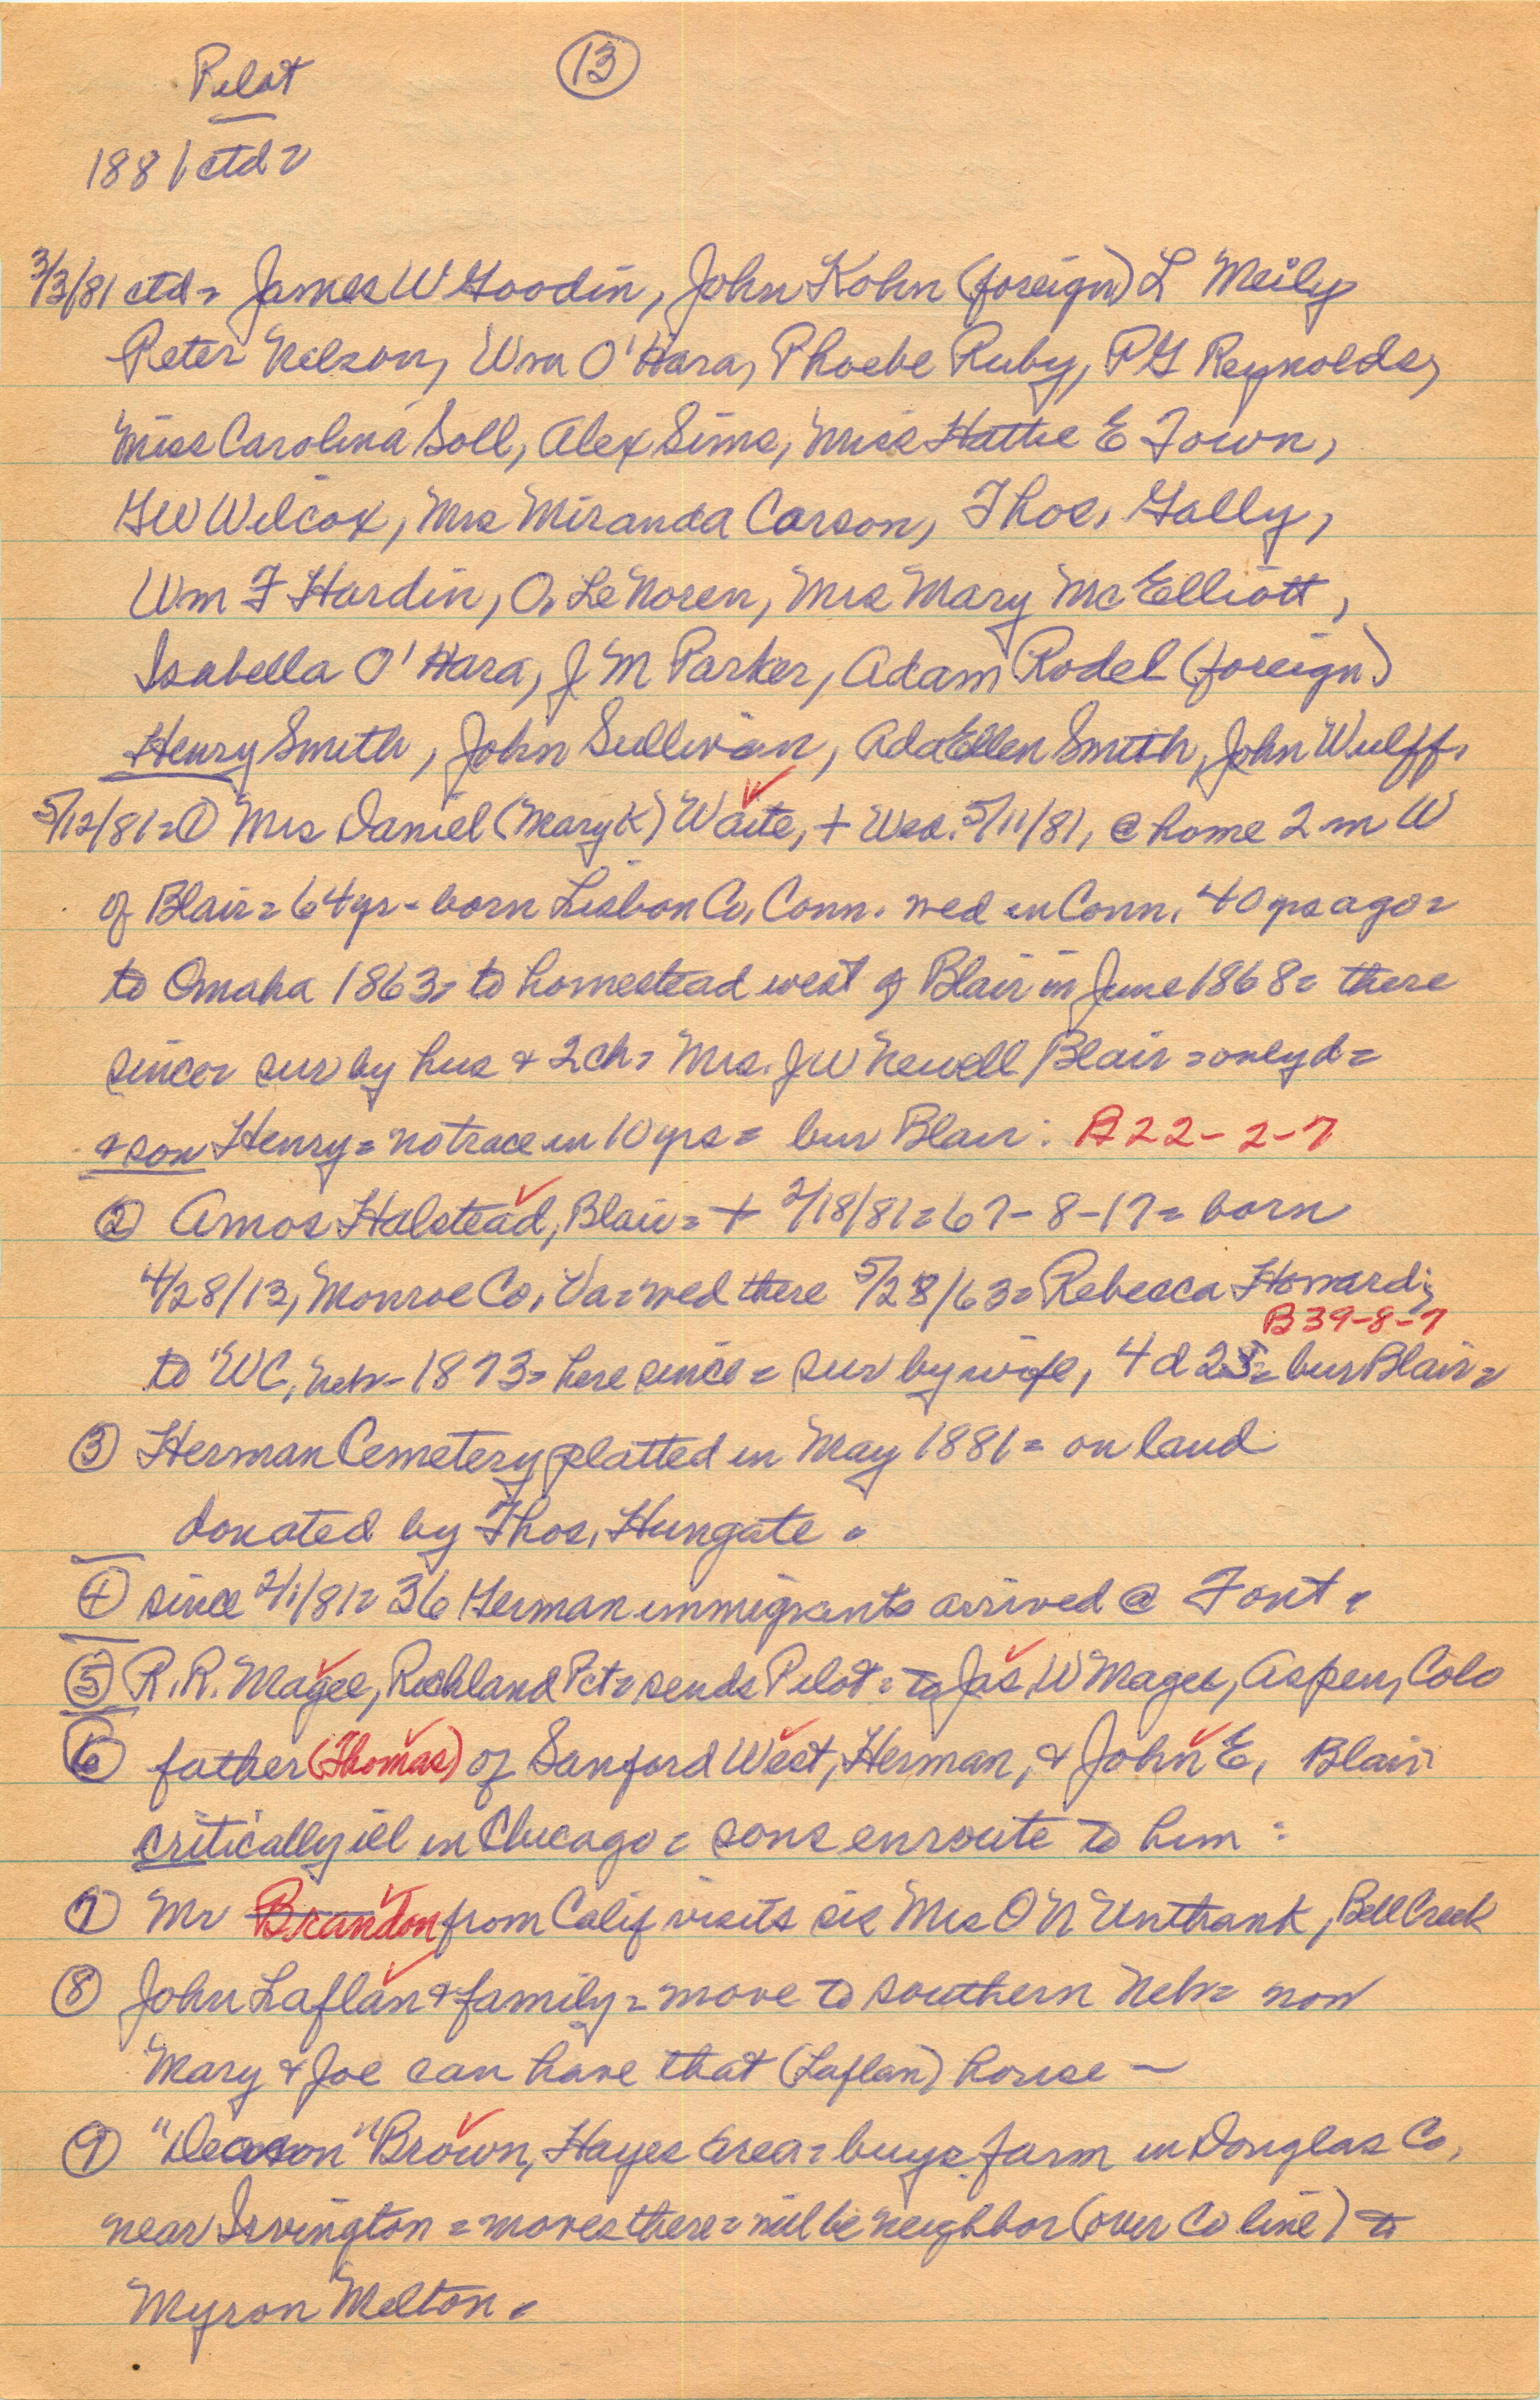 Pilot
13
1881 ctd=
3/3/81 ctd= James W Goodin, John Kohn (foreign) L Meily
Peter Nelson, Wm O'Hara, Phoebe Ruby, PG Reynolds,
Miss Carolina Soll, Alex Sims, Miss Hattie E Town,
GW Wilcox, Mrs Miranda Carson, Thos. Gally,
Wm F Hardin, O. LeNoren, Mrs Mary McElliott,
Isabella O'Hara, J M Parker, Adam Rodel (foreign)
Henry Smith, John Sullivan, Ada Ellen Smith, John Wulff.
5/12/81= ① Mrs Daniel (Mary K) Waite, + Wed. 5/11/81, @ home 2 m W
of Blair= 64yr- born Lisbon Co, Conn. wed in Conn. 40 yrs ago=
to Omaha 1863= to homestead west of Blair in June 1868= there
since= sur by hus & 2 ch= Mrs. JW Newell Blair = only d=
& son Henry= no trace in 10 yrs= bur Blair: A22-2-7
② Amos Halstead, Blair= + 2/18/81= 67-8-17= born
4/28/13, Monroe Co, Va= wed there 5/28/63= Rebecca Howard;
B39-8-7
to WC, Neb- 1873= here since= sur by wife, 4 d 2 s= bur Blair=
③ Herman Cemetery platted in May 1881= on land
donated by Thos. Hungate.
④ since 2/1/81= 36 German immigrants arrived @ Font.
⑤ R.R. Magee, Richland Pct= sends Pilot= to Jas. W Magee, Aspen, Colo
⑥ father (Thomas) of Sanford West, Herman, & John E, Blair:
critically ill in Chicago= sons enroute to him:
⑦ Mr Brandon from Calif visits sis Mrs O N Unthank, Bell Creek
⑧ John Laflan & family= move to southern Neb= now
Mary & Joe can have that (Laflan) house —
⑨ "Deacon" Brown, Hayes area= buys farm in Douglas Co,
near Irvington= moves there= will be neighbor (over Co line) to
Myron Melton.